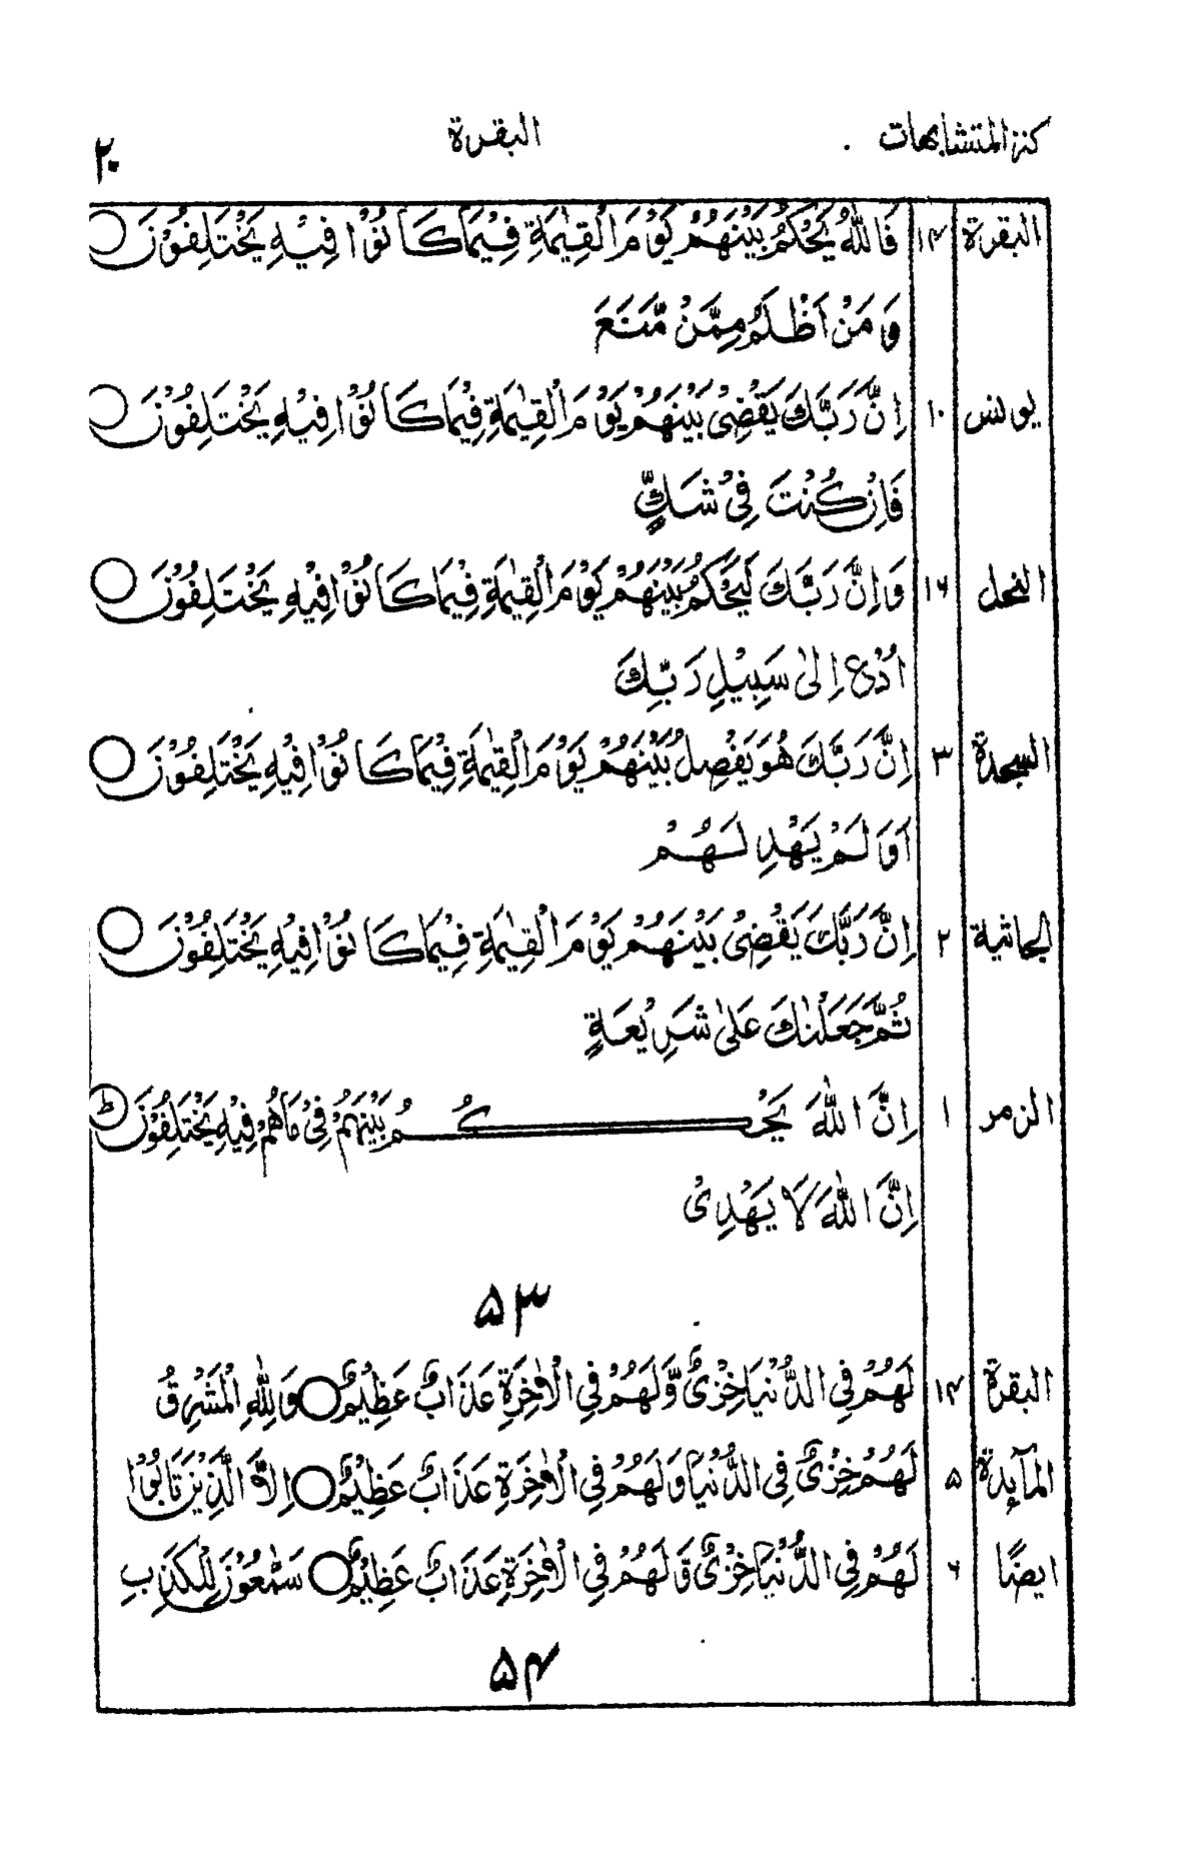 كنز المتشابهات البقرة ۲۰
البقرة ۱۴ فَاللّٰهُ يَحْكُمُ بَيْنَهُمْ يَوْمَ الْقِيٰمَةِ فِيْمَا كَانُوْا فِيْهِ يَخْتَلِفُوْنَ ○
وَمَنْ اَظْلَمُ مِمَّنْ مَّنَعَ
يونس ۱۰ اِنَّ رَبَّكَ يَقْضِىْ بَيْنَهُمْ يَوْمَ الْقِيٰمَةِ فِيْمَا كَانُوْا فِيْهِ يَخْتَلِفُوْنَ ○
فَاِنْ كُنْتَ فِىْ شَكٍّ
النحل ۱۶ وَاِنَّ رَبَّكَ لَيَحْكُمُ بَيْنَهُمْ يَوْمَ الْقِيٰمَةِ فِيْمَا كَانُوْا فِيْهِ يَخْتَلِفُوْنَ ○
اُدْعُ اِلٰى سَبِيْلِ رَبِّكَ
السجدة ۳ اِنَّ رَبَّكَ هُوَ يَفْصِلُ بَيْنَهُمْ يَوْمَ الْقِيٰمَةِ فِيْمَا كَانُوْا فِيْهِ يَخْتَلِفُوْنَ ○
اَوَلَمْ يَهْدِ لَهُمْ
الجاثية ۲ اِنَّ رَبَّكَ يَقْضِىْ بَيْنَهُمْ يَوْمَ الْقِيٰمَةِ فِيْمَا كَانُوْا فِيْهِ يَخْتَلِفُوْنَ ○
ثُمَّ جَعَلْنٰكَ عَلٰى شَرِيْعَةٍ
الزمر ۱ اِنَّ اللّٰهَ يَحْكُمُ بَيْنَهُمْ فِىْ مَاهُمْ فِيْهِ يَخْتَلِفُوْنَ ط
اِنَّ اللّٰهَ لَا يَهْدِىْ
۵۳
البقرة ۱۴ لَهُمْ فِى الدُّنْيَا خِزْىٌ وَّلَهُمْ فِى الْاٰخِرَةِ عَذَابٌ عَظِيْمٌ ○ وَلِلّٰهِ الْمَشْرِقُ
المآئدة ۵ لَهُمْ خِزْىٌ فِى الدُّنْيَا وَلَهُمْ فِى الْاٰخِرَةِ عَذَابٌ عَظِيْمٌ ○ اِلَّا الَّذِيْنَ تَابُوْا
ايضًا ۶ لَهُمْ فِى الدُّنْيَا خِزْىٌ وَّلَهُمْ فِى الْاٰخِرَةِ عَذَابٌ عَظِيْمٌ ○ سَمّٰعُوْنَ لِلْكَذِبِ
۵۴